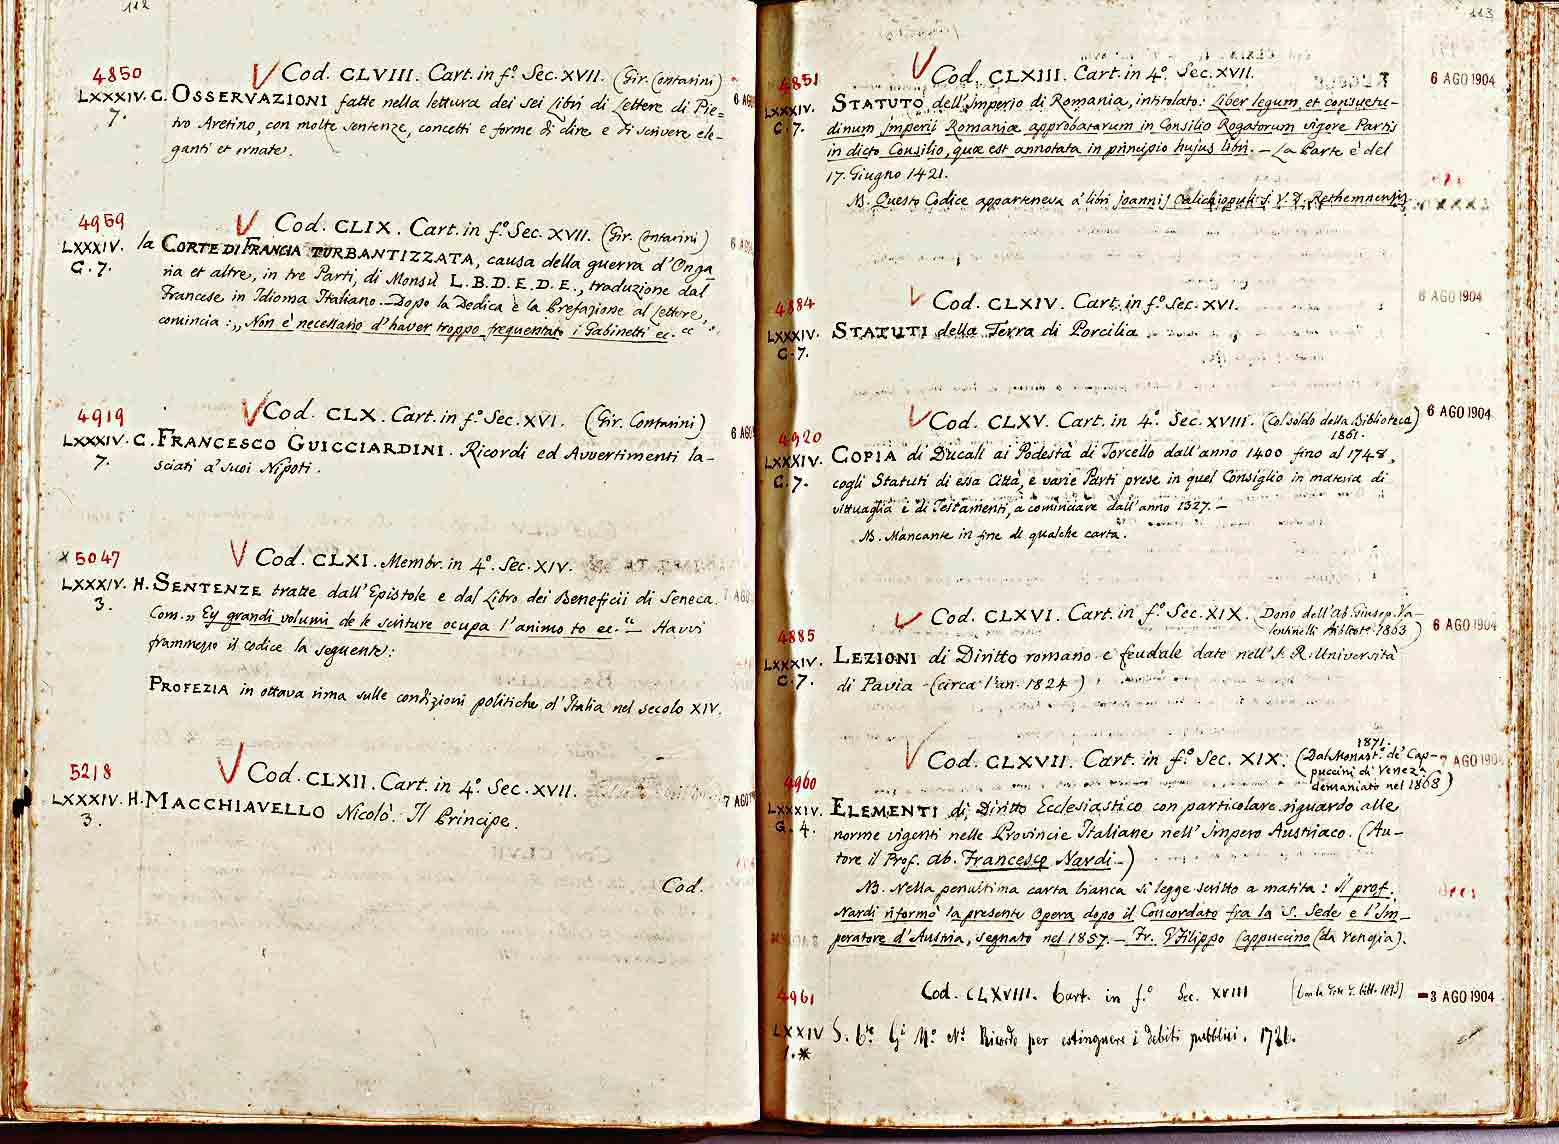 112
4850
Cod. CLVIII. Cart. in f.º Sec. XVII. (Gir. Contarini)
LXXXIV. C. OSSERVAZIONI fatte nella lettura dei sei Libri di Lettere di Pie=
7.
tro Aretino, con molte sentenze, concetti e forme di dire e di scrivere ele-
ganti et ornate.
6 AGO
4959
Cod. CLIX. Cart. in f.º Sec. XVII. (Gir. Contarini)
LXXXIV.
C. 7.
la CORTE DI FRANCIA TURBANTIZZATA, causa della guerra d'Onga-
ria et altre, in tre Parti, di Monsù L.B.D.E.D.E., traduzione dal
Francese in Idioma Italiano. Dopo la Dedica e la Prefazione al Lettore,
comincia: „Non è necessario d'haver troppo frequentato i Gabinetti ec. “
6 AGO
4919
Cod. CLX. Cart. in f.º Sec. XVI. (Gir. Contarini)
LXXXIV. C. FRANCESCO GUICCIARDINI. Ricordi ed Avvertimenti la-
7.
sciati a' suoi Nipoti.
6 AGO
x 5047
Cod. CLXI. Membr. in 4º. Sec. XIV.
LXXXIV. H. SENTENZE tratte dall'Epistole e dal Libro dei Beneficii di Seneca.
3.
Com. „ Ey grandi volumi de le scriture ocupa l'animo to ec. “ — Havvi
frammezzo il codice la seguente:
PROFEZIA in ottava rima sulle condizioni politiche d'Italia nel secolo XIV.
7 AGO
5218
Cod. CLXII. Cart. in 4º. Sec. XVII.
LXXXIV. H. MACCHIAVELLO Nicolò. Il Principe.
3.
7 AGO
Cod.
113
4851
Cod. CLXIII. Cart. in 4º. Sec. XVII.
6 AGO 1904
LXXXIV.
C. 7.
STATUTO dell'Imperio di Romania, intitolato: Liber legum, et consuetu-
dinum Imperii Romaniæ approbatarum in Consilio Rogatorum vigore Partis
in dicto Consilio, quæ est annotata in principio hujus libri. — La Parte è del
17. Giugno 1421.
NB. Questo Codice apparteneva a' libri Joannis Calichiopuli J. V. D. Rethemnensis
4884
Cod. CLXIV. Cart. in f.º Sec. XVI.
6 AGO 1904
LXXXIV.
C. 7.
STATUTI della Terra di Porcilia.
4920
Cod. CLXV. Cart. in 4º. Sec. XVIII. (Col soldo della Biblioteca)
1861.
6 AGO 1904
LXXXIV.
C. 7.
COPIA di Ducali ai Podestà di Torcello dall'anno 1400 fino al 1748,
cogli Statuti di essa Città, e varie Parti prese in quel Consiglio in materia di
vittuaglia e di Testamenti, a cominciare dall'anno 1327. —
NB. Mancante in fine di qualche carta.
4885
Cod. CLXVI. Cart. in f.º Sec. XIX. (Dono dell'Ab. Giusep. Va-
lentinelli Bibliot. 1863)
6 AGO 1904
LXXXIV.
C. 7.
LEZIONI di Diritto romano e feudale date nell'I. R. Università
di Pavia (circa l'an. 1824)
4960
Cod. CLXVII. Cart. in f.º Sec. XIX. (Dal Monast.º de' Cap-
1871.
puccini di Venez.ª
demaniato nel 1868)
7 AGO 1904
LXXXIV.
G. 4.
ELEMENTI di Diritto Ecclesiastico con particolare riguardo alle
norme vigenti nelle Provincie Italiane nell'Impero Austriaco. (Au-
tore il Prof. ab. Francesco Nardi —)
NB. Nella penultima carta bianca si legge scritto a matita: Il prof.
Nardi riformò la presente Opera dopo il Concordato fra la S. Sede e l'Im-
peratore d'Austria, segnato nel 1857. — Fr. Filippo Cappuccino (da Venezia).
4961
Cod. CLXVIII. Cart. in f.º Sec. XVIII
3 AGO 1904
LXXIV
1.*
Ricordo per estinguere i debiti pubblici. 1726.